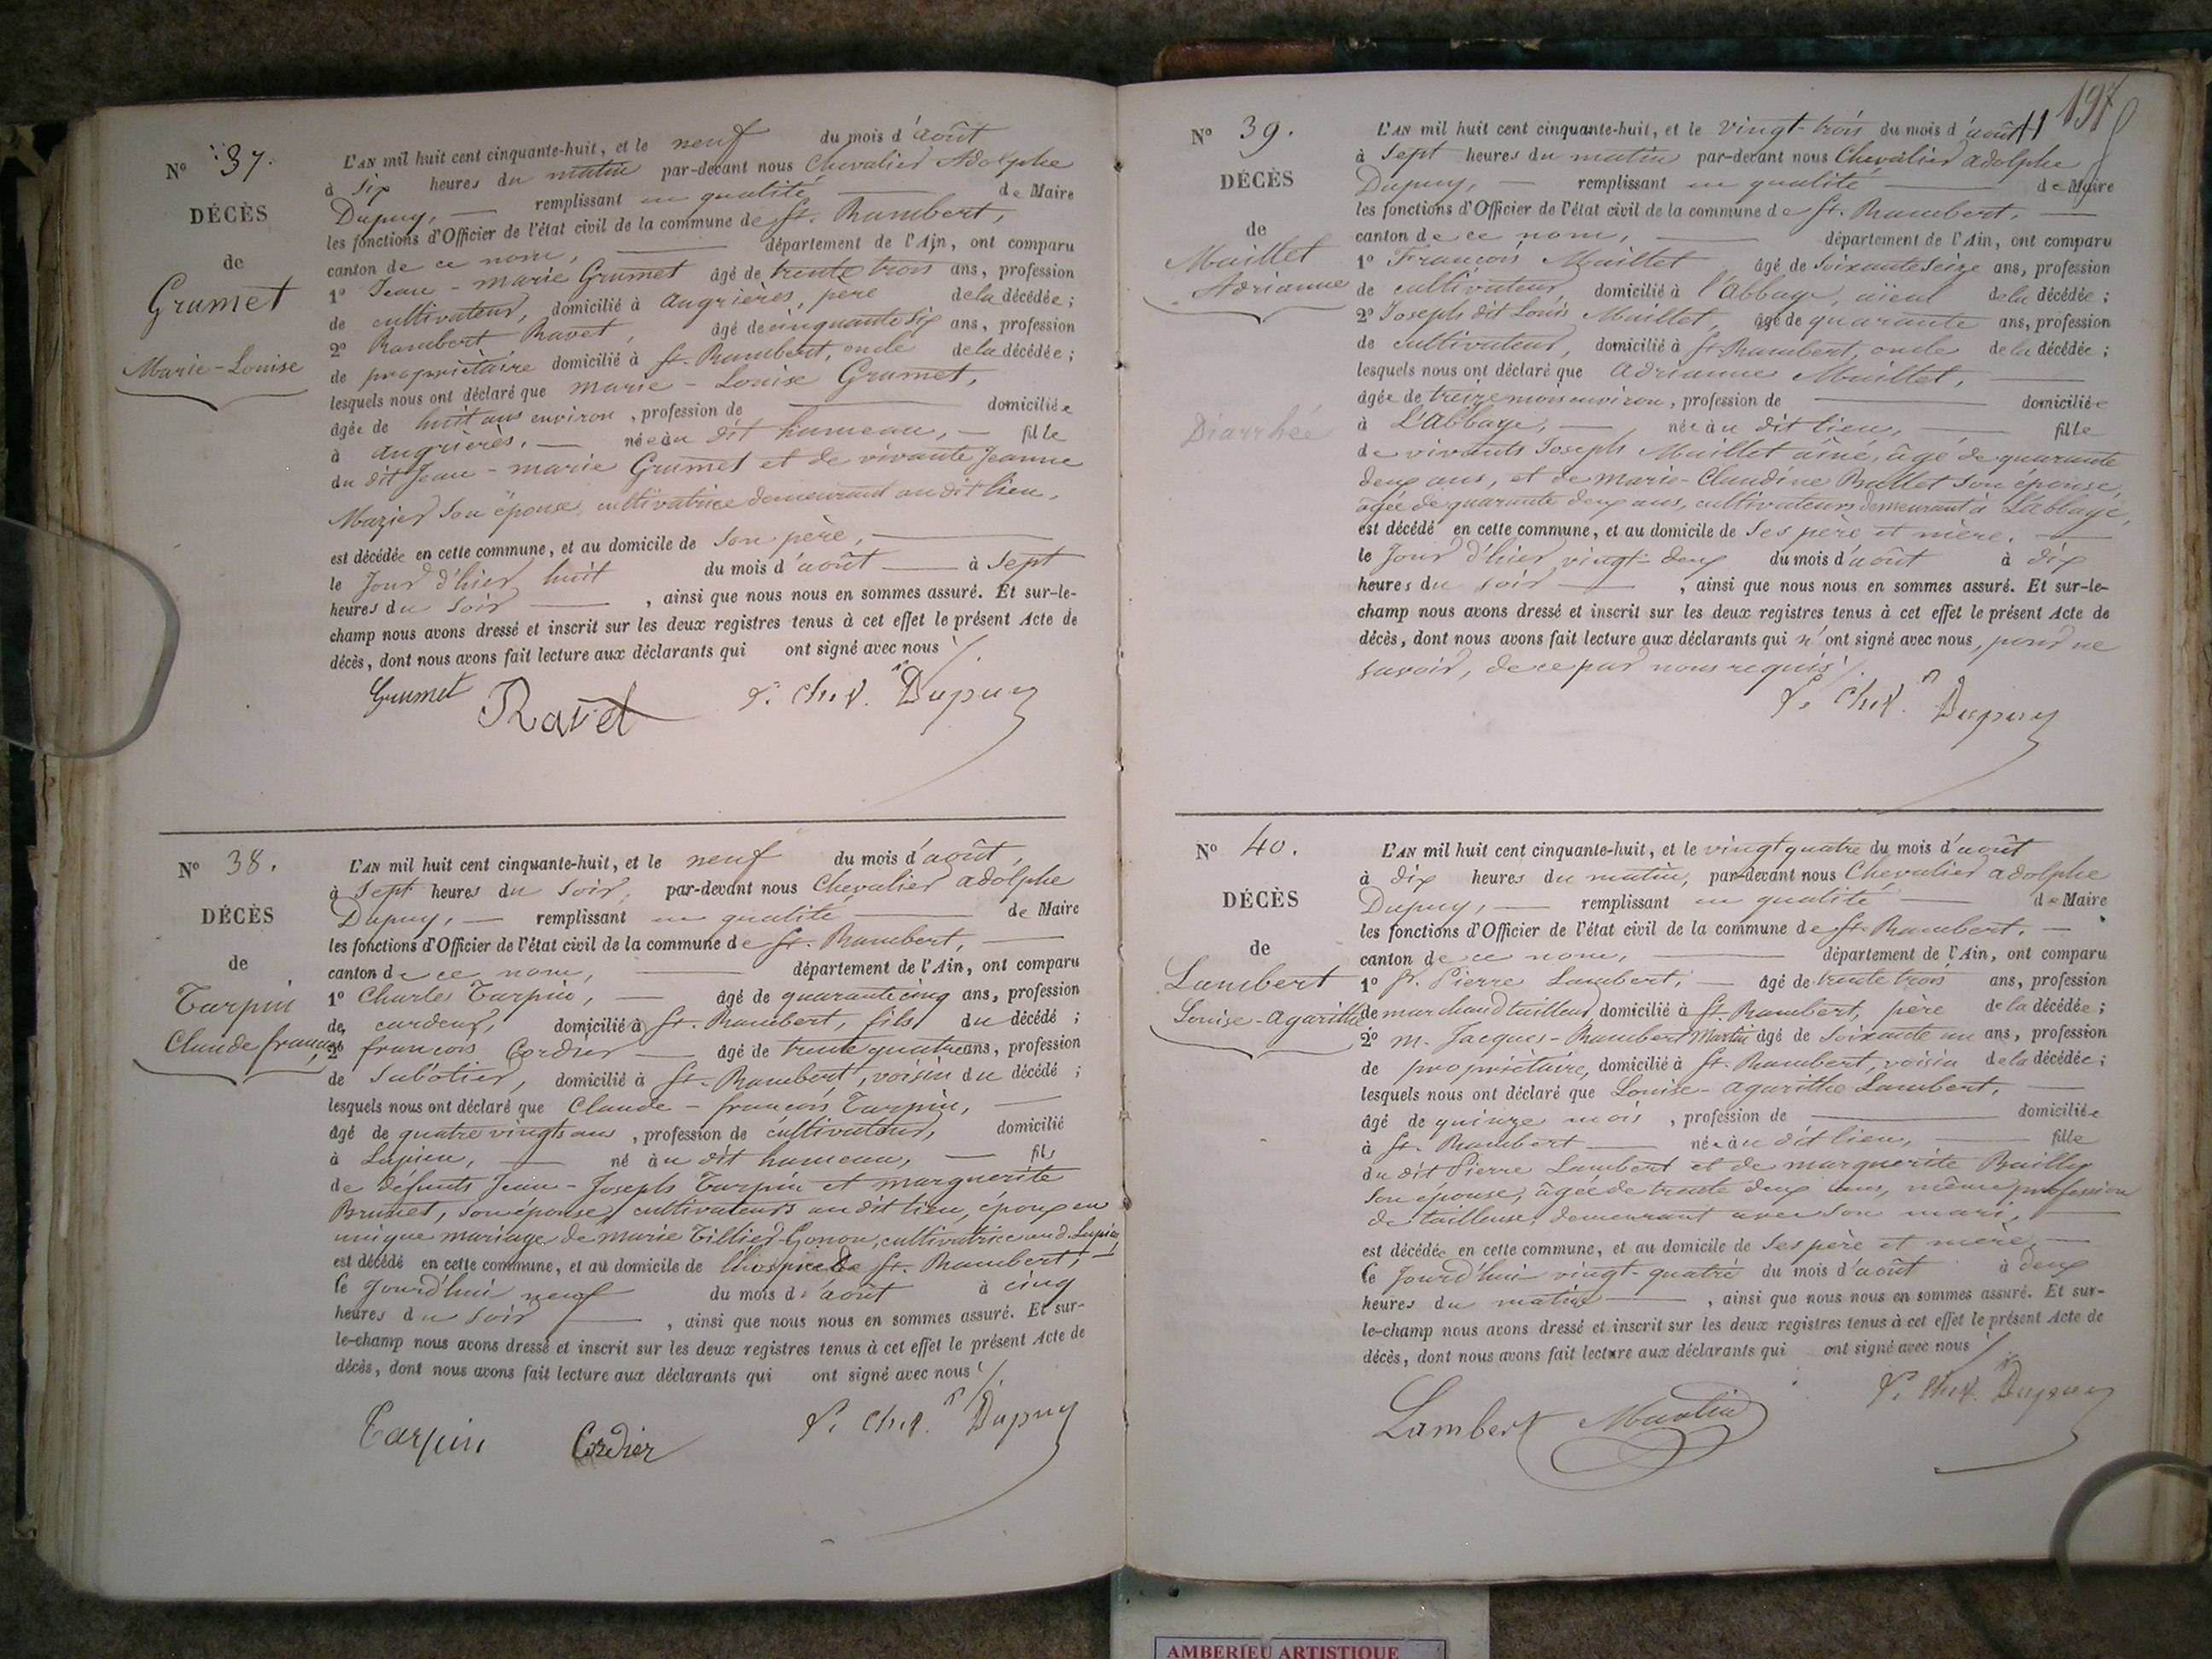 N° 37.
DÉCÈS
de
Grumet
Marie-Louise
L'AN mil huit cent cinquante-huit, et le neuf du mois d'août
à six heures du matin par-devant nous Chevalier Adolphe
Dupuy, — remplissant en qualité — de Maire
les fonctions d'Officier de l'état civil de la commune de St. Rambert,
canton de ce nom, — département de l'Ain, ont comparu
1° Jean-marie Grumet âgé de trente trois ans, profession
de cultivateur, domicilié à angrières, père de la décédée ;
2° Rambert Ravet, âgé de cinquante six ans, profession
de propriétaire domicilié à St. Rambert, oncle de la décédée ;
lesquels nous ont déclaré que marie-Louise Grumet,
âgée de huit ans environ, profession de — domiciliée
à angrières, — née au dit hameau, — fille
du dit Jean-marie Grumet et de vivante Jeanne
Mazier son épouse cultivatrice demeurant au dit lieu,
est décédée en cette commune, et au domicile de son père, —
le jour d'hier huit du mois d'août — à sept
heures du soir — , ainsi que nous nous en sommes assuré. Et sur-le-
champ nous avons dressé et inscrit sur les deux registres tenus à cet effet le présent Acte de
décès, dont nous avons fait lecture aux déclarants qui ont signé avec nous /.
Grumet Ravet P. Chev. Dupuy
N° 38.
DÉCÈS
de
Tarpin
Claude françois
L'AN mil huit cent cinquante-huit, et le neuf du mois d'août,
à sept heures du soir, par-devant nous Chevalier adolphe
Dupuy, — remplissant en qualité — de Maire
les fonctions d'Officier de l'état civil de la commune de St. Rambert, —
canton de ce nom, — département de l'Ain, ont comparu
1° Charles Tarpin, — âgé de quarante cinq ans, profession
de cardeur, domicilié à St. Rambert, fils du décédé ;
2° françois Cordier — âgé de trente quatre ans, profession
de sabotier, domicilié à St. Rambert, voisin du décédé ;
lesquels nous ont déclaré que Claude-françois Tarpin, —
âgé de quatre vingts ans, profession de cultivateur, domicilié
à Lupieu, — né au dit hameau, — fils
de défunts Jean-Joseph Tarpin et marguerite
Brunet, son épouse, cultivateurs au dit lieu, époux en
unique mariage de marie Tillier-Gonon, cultivatrice aud. Lupieu,
est décédé en cette commune, et au domicile de l'hospice de St. Rambert, —
le jourd'hui neuf du mois d'août à cinq
heures du soir — , ainsi que nous nous en sommes assuré. Et sur-
le-champ nous avons dressé et inscrit sur les deux registres tenus à cet effet le présent Acte de
décès, dont nous avons fait lecture aux déclarants qui ont signé avec nous /.
Tarpin Cordier P. Chev. Dupuy
197
N° 39.
DÉCÈS
de
Maillet
Adrianne
Diarrhée
L'AN mil huit cent cinquante-huit, et le vingt-trois du mois d'août
à sept heures du matin par-devant nous Chevalier adolphe
Dupuy, — remplissant en qualité — de Maire
les fonctions d'Officier de l'état civil de la commune de St. Rambert, —
canton de ce nom, — département de l'Ain, ont comparu
1° François Maillet âgé de soixante seize ans, profession
de cultivateur, domicilié à l'abbaye, aïeul de la décédée ;
2° Joseph dit Louis Maillet, âgé de quarante ans, profession
de cultivateur, domicilié à St. Rambert, oncle de la décédée ;
lesquels nous ont déclaré que adrianne Maillet, —
âgée de treize mois environ, profession de — domiciliée
à L'abbaye, — née au dit lieu, — fille
de vivants Joseph Maillet aîné, âgé de quarante
deux ans, et de marie-Claudine Ballet son épouse,
âgée de quarante deux ans, cultivateurs demeurant à L'abbaye,
est décédé en cette commune, et au domicile de ses père et mère. —
le jour d'hier vingt-deux du mois d'août à dix
heures du soir — , ainsi que nous nous en sommes assuré. Et sur-le-
champ nous avons dressé et inscrit sur les deux registres tenus à cet effet le présent Acte de
décès, dont nous avons fait lecture aux déclarants qui n'ont signé avec nous, pour ne
savoir, de ce par nous requis /.
P. Chev. Dupuy
N° 40.
DÉCÈS
de
Lambert
Louise-agarithe
L'AN mil huit cent cinquante-huit, et le vingt quatre du mois d'août
à dix heures du matin, par-devant nous Chevalier adolphe
Dupuy, — remplissant en qualité — de Maire
les fonctions d'Officier de l'état civil de la commune de St. Rambert. —
canton de ce nom, — département de l'Ain, ont comparu
1° Pierre Lambert, — âgé de trente trois ans, profession
de marchand tailleur, domicilié à St. Rambert, père de la décédée ;
2° m. Jacques-Rambert Martin âgé de soixante un ans, profession
de propriétaire, domicilié à St. Rambert, voisin de la décédée ;
lesquels nous ont déclaré que Louise-agarithe Lambert, —
âgé de quinze mois, profession de — domiciliée
à St. Rambert — née au dit lieu, — fille
du dit Pierre Lambert et de marguerite Bailly
son épouse, âgée de trente deux ans, même profession
de tailleuse, demeurant avec son mari, —
est décédée en cette commune, et au domicile de ses père et mère, —
le jourd'hui vingt-quatre du mois d'août à deux
heures du matin — , ainsi que nous nous en sommes assuré. Et sur-
le-champ nous avons dressé et inscrit sur les deux registres tenus à cet effet le présent Acte de
décès, dont nous avons fait lecture aux déclarants qui ont signé avec nous /
Lambert Martin P. Chev. Dupuy
AMBERIEU ARTISTIQUE